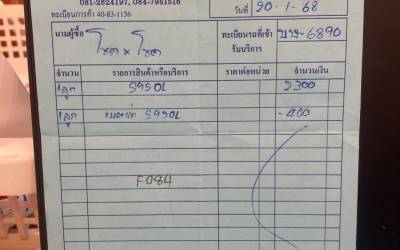 081-2624197, 084-7951516
ทะเบียนการค้า 40-83-1156
วันที่ 20-1-68
นามผู้ซื้อ โชค x โชค
ทะเบียนรถที่เข้ารับบริการ 6890
จำนวน รายการสินค้าหรือบริการ ราคาต่อหน่วย จำนวนเงิน
1ลูก S95DL 3300
1ลูก S95DL -400
F084